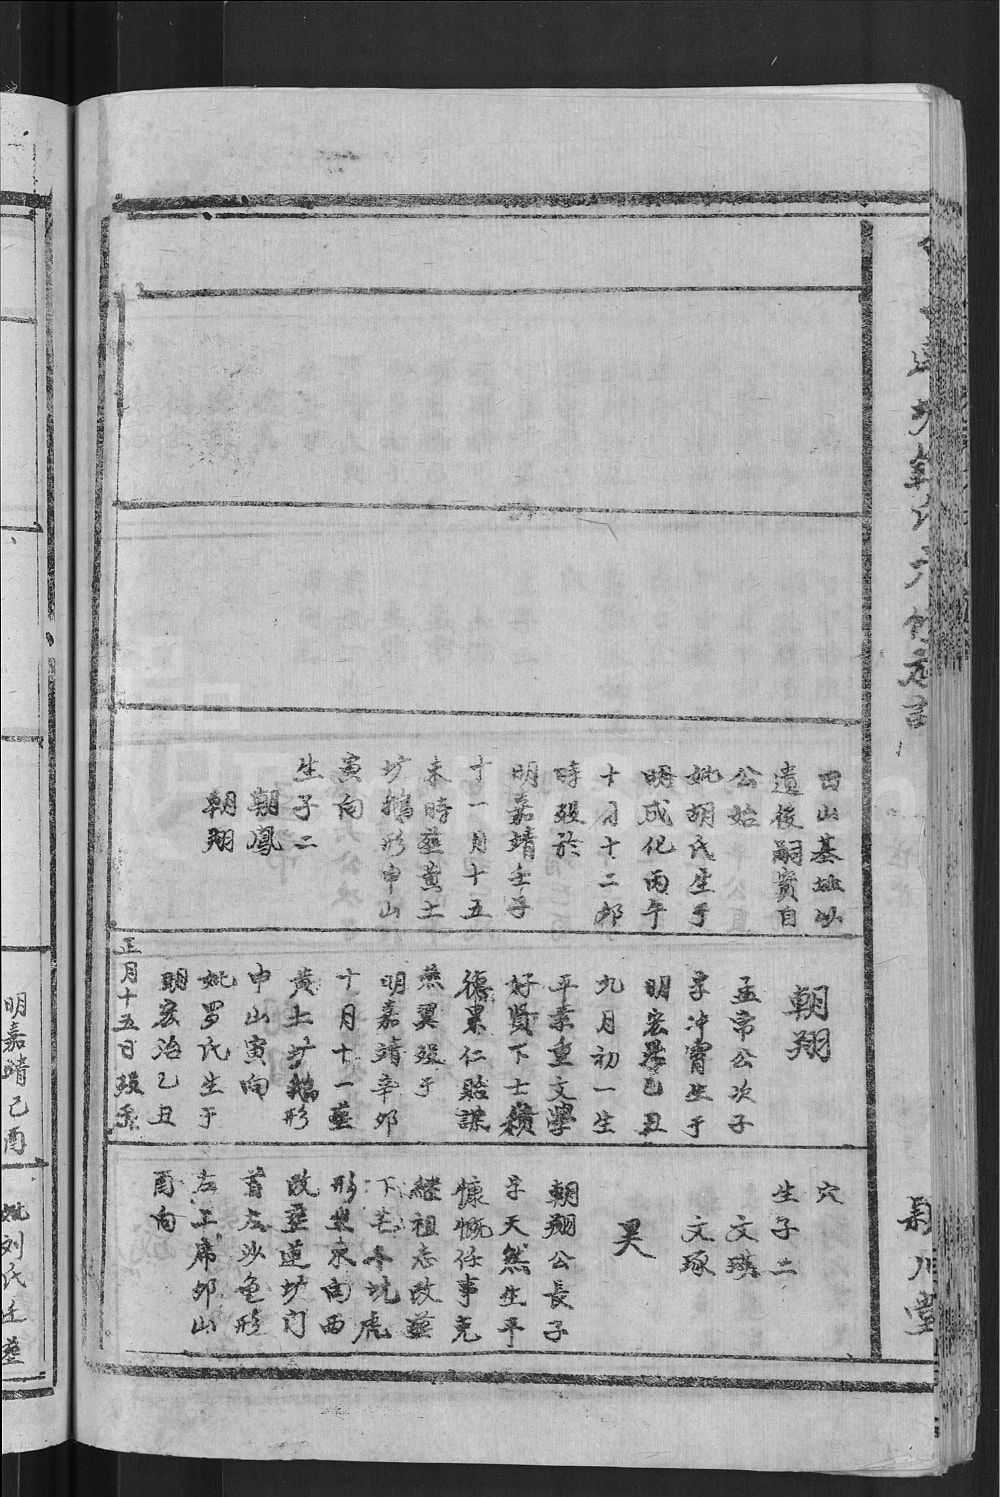 田山基址以
遺後嗣實自
公始
妣胡氏生于
明成化丙午
十月十二卯
時歿於
明嘉靖壬子
十一月十五
未時葬黄土
圹鵝形申山
寅向
生子二
朝鳳
朝翔
朝翔
孟常公次子
字冲霄生于
明宏治乙丑
九月初一生
平素重文學
好賢下士積
德累仁贻謀
燕翼歿于
明嘉靖辛卯
十月十一葬
黄土圹鵝形
申山寅向
妣罗氏生于
明宏治乙丑
正月十五日歿于
穴
生子二
文瑛
文琢
昊
朝翔公長子
字天然生平
慷慨任事克
继祖志改葬
下芒冬坑虎
形坐东向西
改葬道圹门
首左沙龟形
右工席卯山
酉向
堂
明嘉靖己酉
妣刘氏迁葬